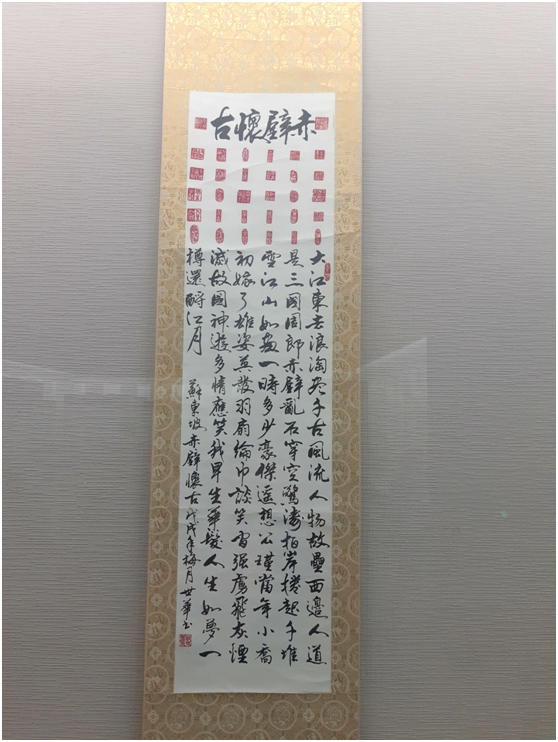 赤壁懷古
大江東去浪淘盡千古風流人物故壘西邊人道
是三國周郎赤壁亂石穿空驚濤拍岸捲起千堆
雪江山如畫一時多少豪傑遙想公瑾當年小喬
初嫁了雄姿英發羽扇綸巾談笑間强虜飛灰煙
滅故國神遊多情應笑我早生華髮人生如夢一
樽還酹江月
蘇東坡赤壁懷古戊戌年梅月世華書